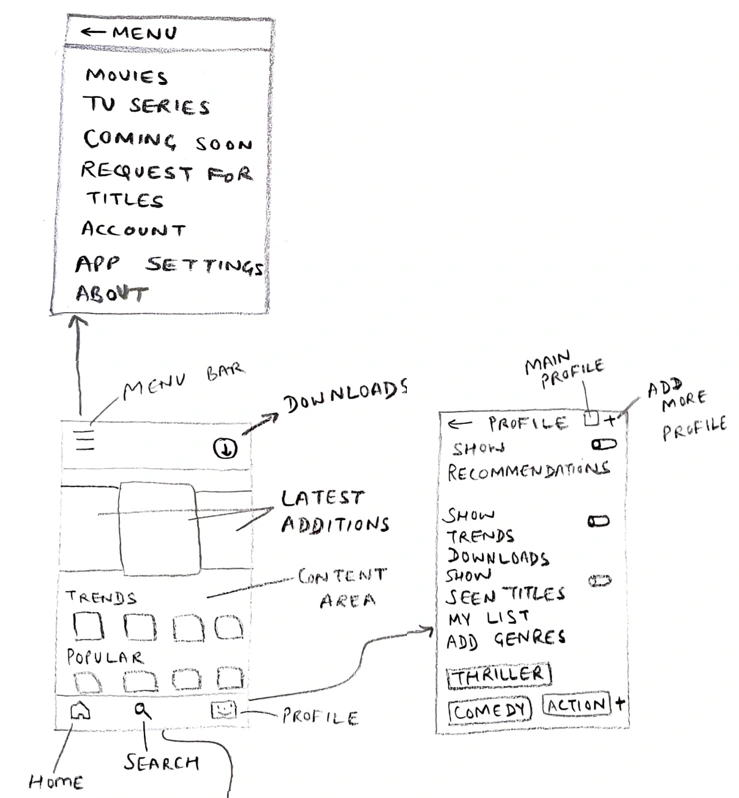 ← MENU
MOVIES
TV SERIES
COMING SOON
REQUEST FOR
TITLES
ACCOUNT
APP SETTINGS
ABOUT
MENU BAR
DOWNLOADS
LATEST
ADDITIONS
CONTENT
AREA
TRENDS
POPULAR
PROFILE
SEARCH
HOME
MAIN
PROFILE
ADD
MORE
PROFILE
← PROFILE +
SHOW
RECOMMENDATIONS
SHOW
TRENDS
DOWNLOADS
SHOW
SEEN TITLES
MY LIST
ADD GENRES
THRILLER
COMEDY ACTION +